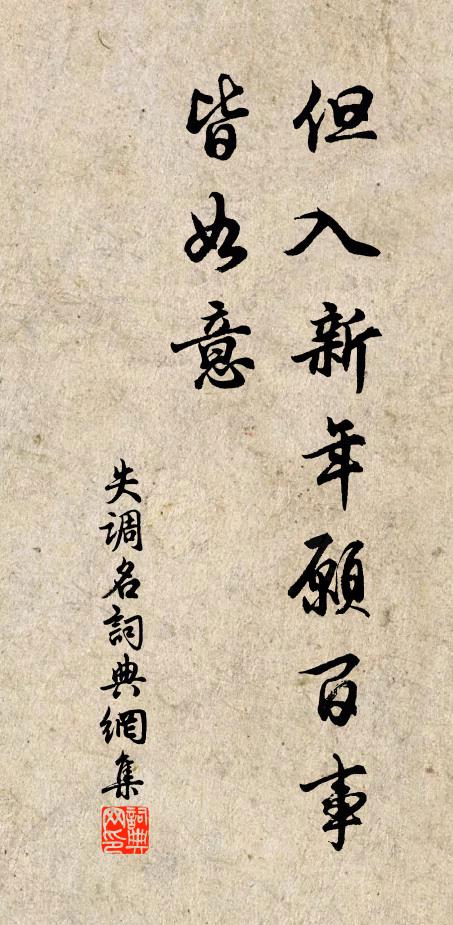 但入新年願百事
皆如意
失調名詞典網集
詞典网印